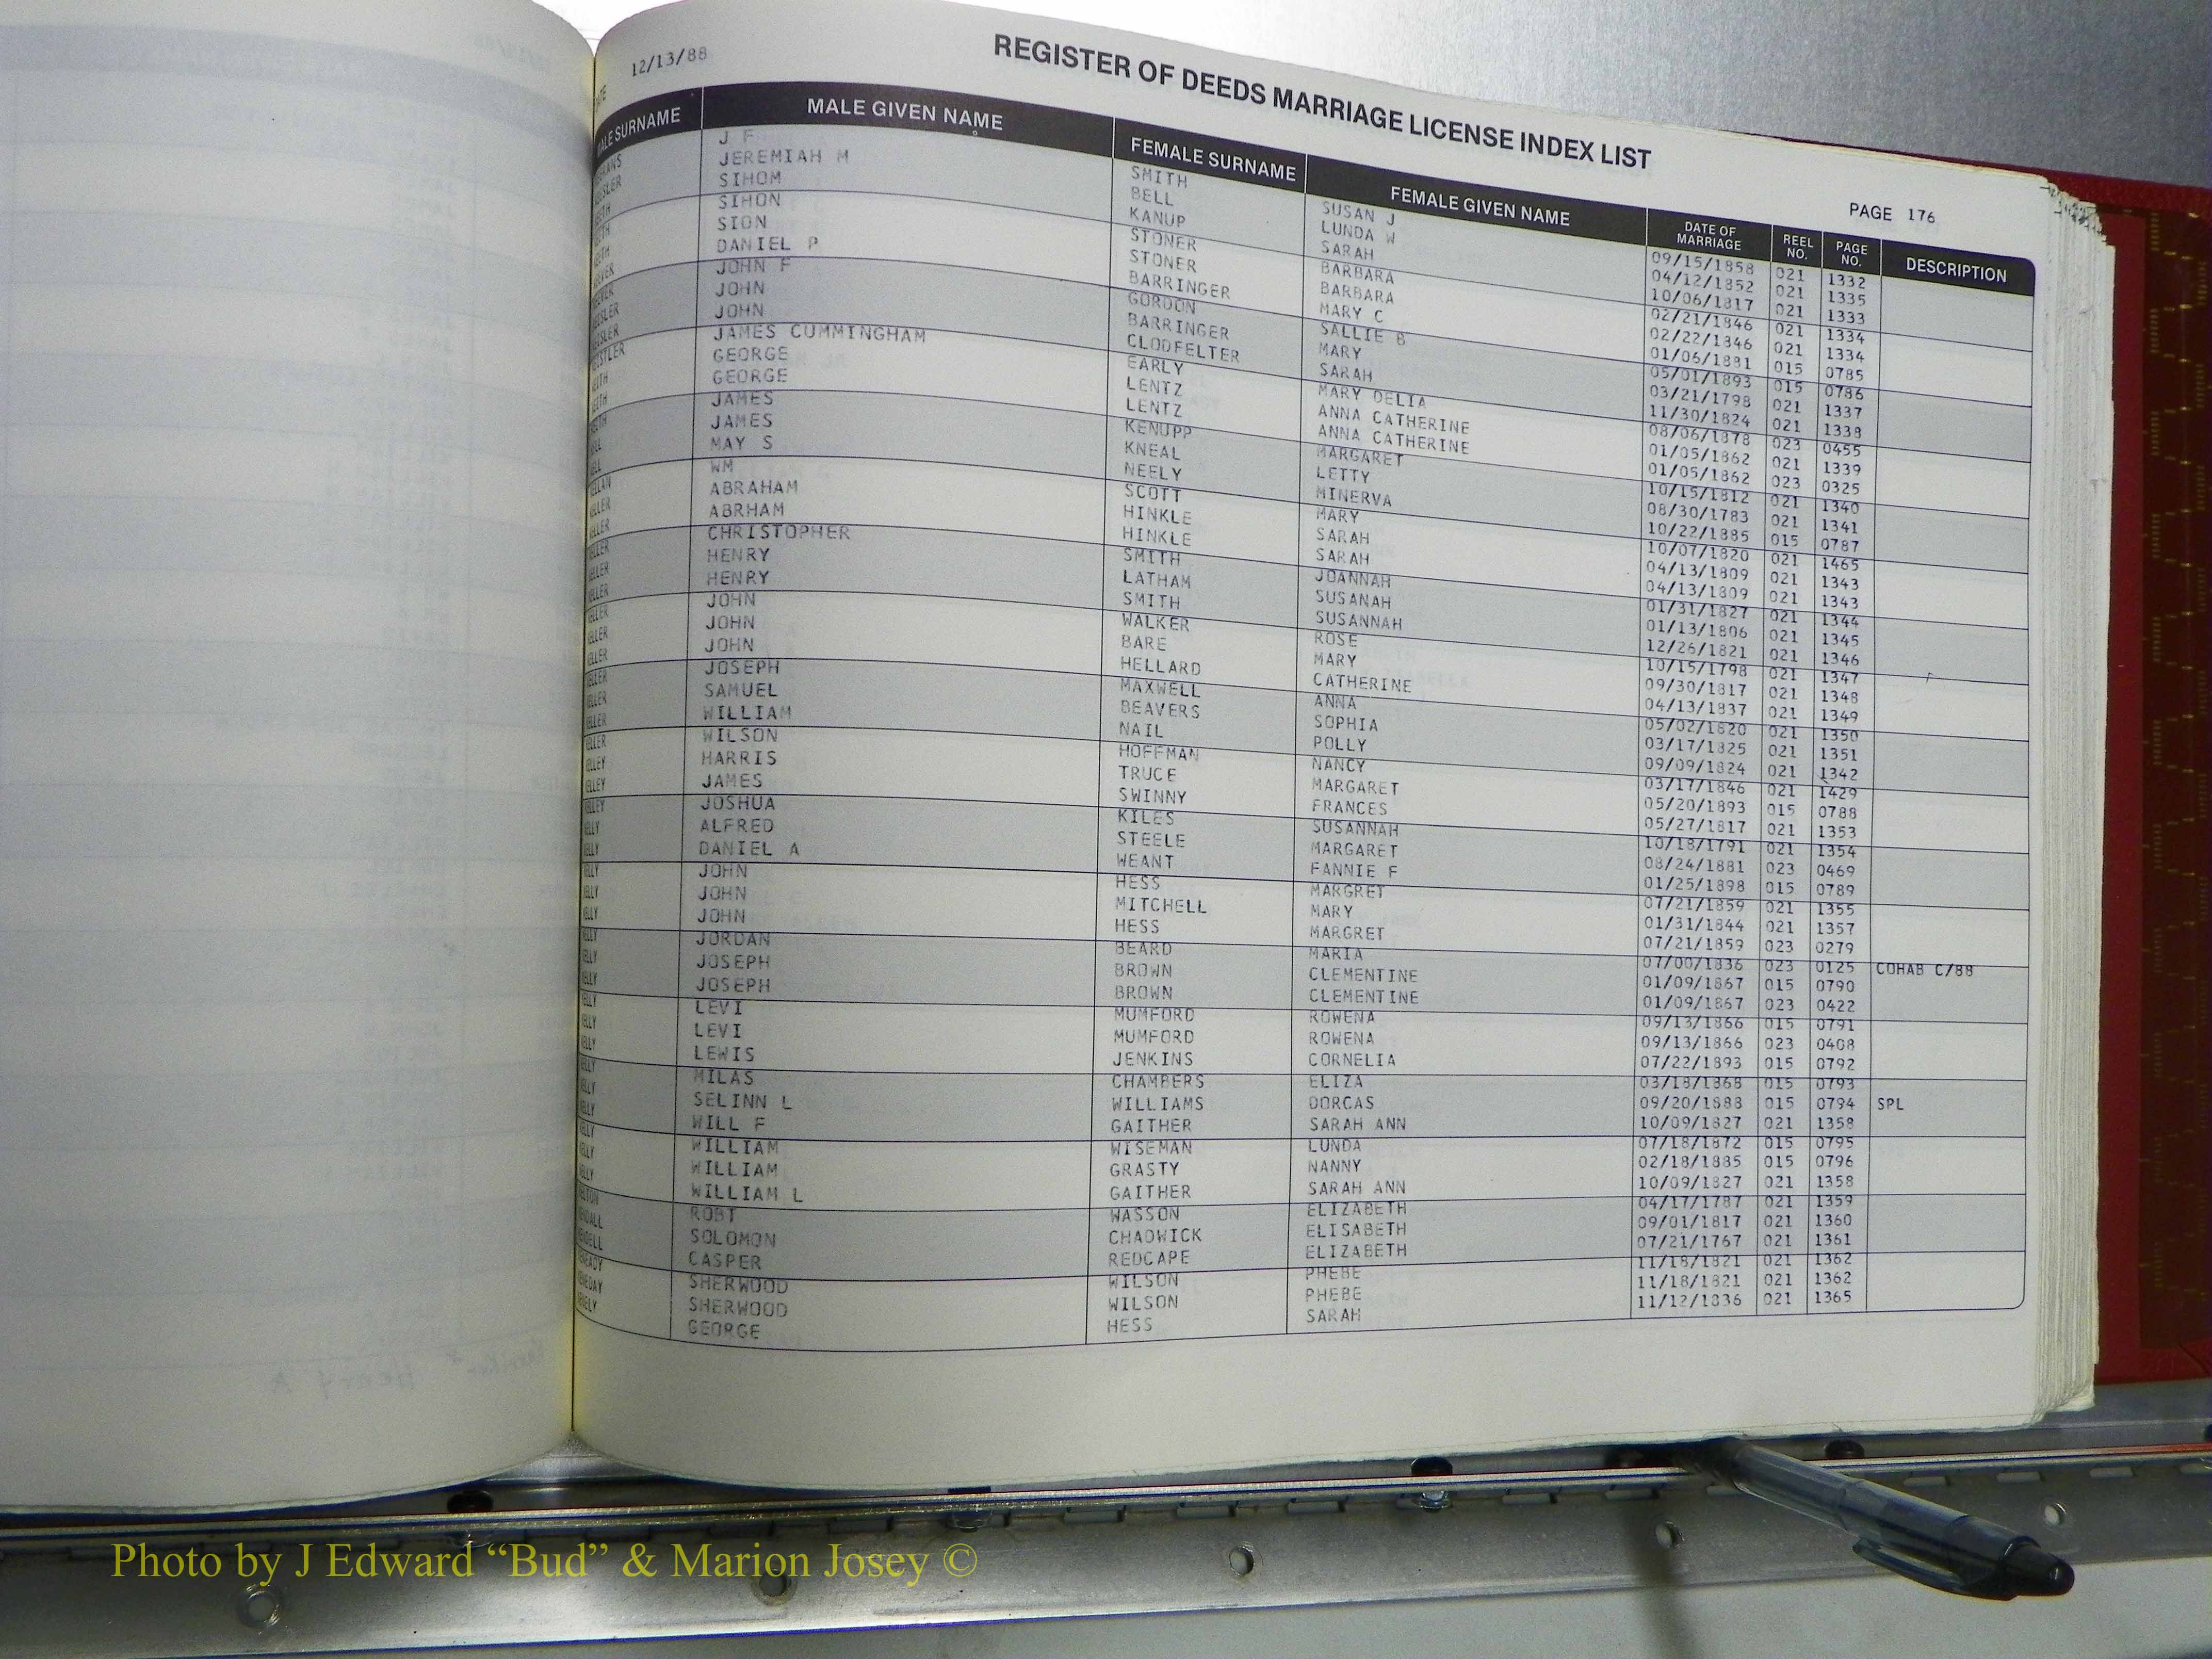 12/13/88
REGISTER OF DEEDS MARRIAGE LICENSE INDEX LIST
PAGE 176
SURNAME MALE GIVEN NAME FEMALE SURNAME FEMALE GIVEN NAME DATE OF MARRIAGE REEL NO. PAGE NO. DESCRIPTION
J F SMITH SUSAN J 09/15/1858 021 1332
JEREMIAH M BELL LUNDA W 04/12/1852 021 1335
SIHOM KANUP SARAH 10/06/1817 021 1333
SIHON STONER BARBARA 02/21/1846 021 1334
SION STONER BARBARA 02/22/1846 021 1334
DANIEL P BARRINGER MARY C 01/06/1881 015 0785
JOHN F GORDON SALLIE B 05/01/1893 015 0786
JOHN BARRINGER MARY 03/21/1798 021 1337
JOHN CLODFELTER SARAH 11/30/1824 021 1338
JAMES CUMMINGHAM EARLY MARY DELIA 08/06/1878 023 0455
GEORGE LENTZ ANNA CATHERINE 01/05/1862 021 1339
GEORGE LENTZ ANNA CATHERINE 01/05/1862 023 0325
JAMES KENUPP MARGARET 10/15/1812 021 1340
JAMES KNEAL LETTY 08/30/1783 021 1341
MAY S NEELY MINERVA 10/22/1885 015 0787
WM SCOTT MARY 10/07/1820 021 1465
ABRAHAM HINKLE SARAH 04/13/1809 021 1343
ABRHAM HINKLE SARAH 04/13/1809 021 1343
CHRISTOPHER SMITH JOANNAH 01/31/1827 021 1344
HENRY LATHAM SUSANAH 01/13/1806 021 1345
HENRY SMITH SUSANNAH 12/26/1821 021 1346
JOHN WALKER ROSE 10/15/1798 021 1347
JOHN BARE MARY 09/30/1817 021 1348
JOHN HELLARD CATHERINE 04/13/1837 021 1349
JOSEPH MAXWELL ANNA 05/02/1820 021 1350
SAMUEL BEAVERS SOPHIA 03/17/1825 021 1351
WILLIAM NAIL POLLY 09/09/1824 021 1342
WILSON HOFFMAN NANCY 03/17/1846 021 1429
HARRIS TRUCE MARGARET 05/20/1893 015 0788
JAMES SWINNY FRANCES 05/27/1817 021 1353
JOSHUA KILES SUSANNAH 10/18/1791 021 1354
ALFRED STEELE MARGARET 08/24/1881 023 0469
DANIEL A WEANT FANNIE F 01/25/1898 015 0789
JOHN HESS MARGRET 07/21/1859 021 1355
JOHN MITCHELL MARY 01/31/1844 021 1357
JOHN HESS MARGRET 07/21/1859 023 0279
JORDAN BEARD MARIA 07/00/1836 023 0125 COHAB C/88
JOSEPH BROWN CLEMENTINE 01/09/1867 015 0790
JOSEPH BROWN CLEMENTINE 01/09/1867 023 0422
LEVI MUMFORD ROWENA 09/13/1866 015 0791
LEVI MUMFORD ROWENA 09/13/1866 023 0408
LEWIS JENKINS CORNELIA 07/22/1893 015 0792
MILAS CHAMBERS ELIZA 03/18/1868 015 0793
SELINN L WILLIAMS DORCAS 09/20/1888 015 0794 SPL
WILL F GAITHER SARAH ANN 10/09/1827 021 1358
WILLIAM WISEMAN LUNDA 07/18/1872 015 0795
WILLIAM GRASTY NANNY 02/18/1885 015 0796
WILLIAM L GAITHER SARAH ANN 10/09/1827 021 1358
ROBT WASSON ELIZABETH 04/17/1787 021 1359
SOLOMON CHADWICK ELISABETH 09/01/1817 021 1360
CASPER REDCAPE ELIZABETH 07/21/1767 021 1361
SHERWOOD WILSON PHEBE 11/18/1821 021 1362
SHERWOOD WILSON PHEBE 11/18/1821 021 1362
GEORGE HESS SARAH 11/12/1836 021 1365
Photo by J Edward “Bud” & Marion Josey ©